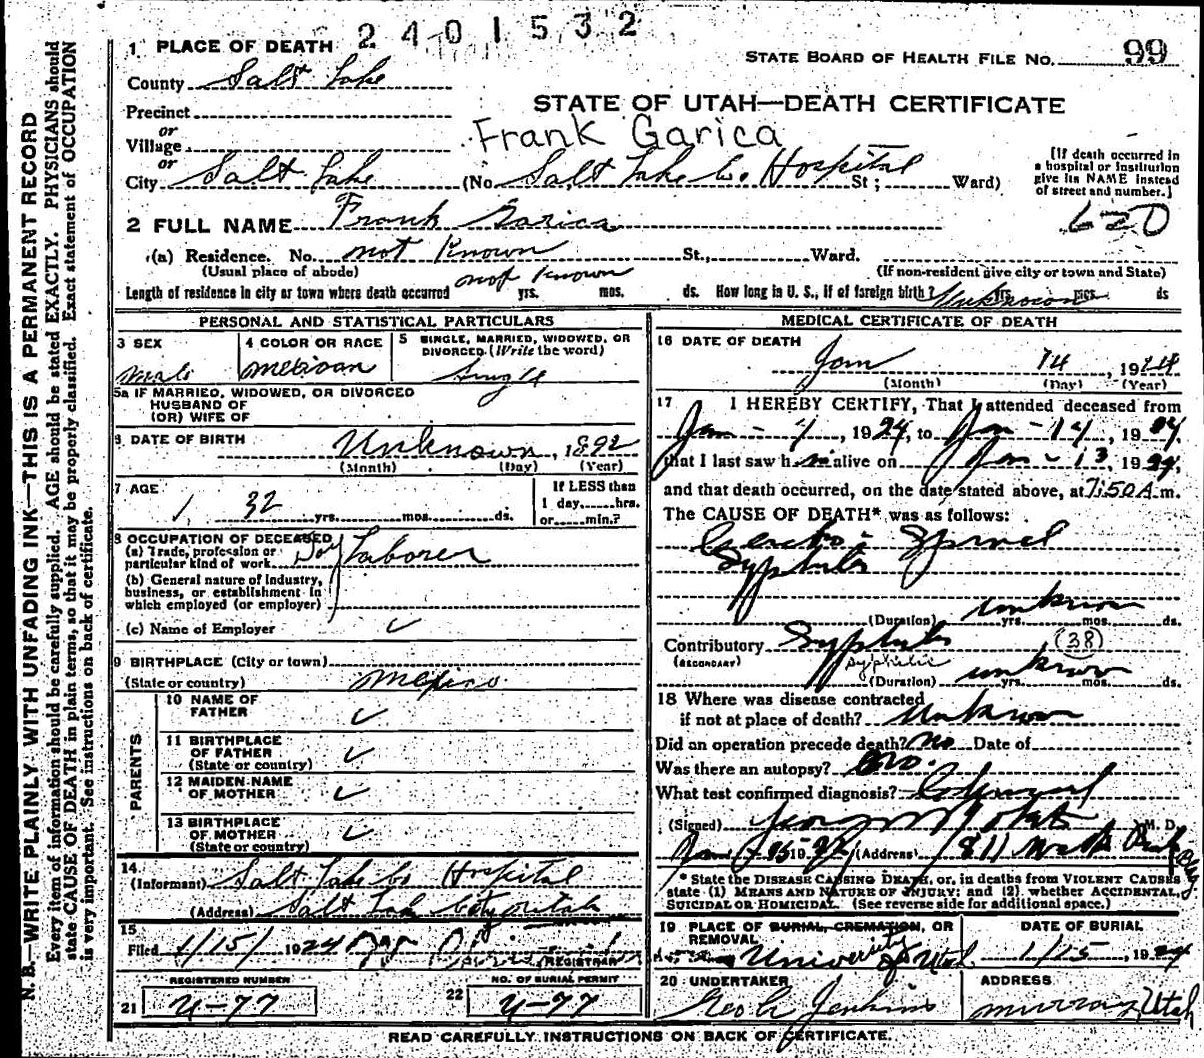 2401532
1 PLACE OF DEATH
STATE BOARD OF HEALTH FILE NO. 99
County Salt Lake
STATE OF UTAH—DEATH CERTIFICATE
Precinct
or
Village
Frank Garica
or
City Salt Lake (No. Salt Lake Co. Hospital St; Ward)
[If death occurred in a hospital or institution give its NAME instead of street and number.]
620
2 FULL NAME Frank Garica
(a) Residence. No. not Known St., Ward.
(Usual place of abode) (If non-resident give city or town and State)
Length of residence in city or town where death occurred not Known yrs. mos. ds. How long in U. S., if of foreign birth? Unknown yrs. mos. ds
PERSONAL AND STATISTICAL PARTICULARS
3 SEX
Male
4 COLOR OR RACE
Mexican
5 SINGLE, MARRIED, WIDOWED, OR DIVORCED (Write the word)
Single
5a IF MARRIED, WIDOWED, OR DIVORCED
HUSBAND OF
(OR) WIFE OF
6 DATE OF BIRTH
Unknown, 1892
(Month) (Day) (Year)
7 AGE
32 yrs. mos. ds.
If LESS than
1 day hrs.
or min.?
8 OCCUPATION OF DECEASED
(a) Trade, profession or
particular kind of work Day Laborer
(b) General nature of industry,
business, or establishment in
which employed (or employer)
(c) Name of Employer ✓
9 BIRTHPLACE (City or town)
(State or country) Mexico
PARENTS
10 NAME OF
FATHER ✓
11 BIRTHPLACE
OF FATHER ✓
(State or country)
12 MAIDEN NAME
OF MOTHER ✓
13 BIRTHPLACE
OF MOTHER ✓
(State or country)
14
(Informant) Salt Lake Co Hospital
(Address) Salt Lake City Utah
15
Filed 1/15/ 1924
REGISTRAR
REGISTERED NUMBER
21 U-77
NO. OF BURIAL PERMIT
22 U-77
MEDICAL CERTIFICATE OF DEATH
16 DATE OF DEATH
Jan 14, 1924
(Month) (Day) (Year)
17 I HEREBY CERTIFY, That I attended deceased from
Jan - 4, 1924, to Jan - 14, 1924.
that I last saw him alive on Jan - 13, 1924,
and that death occurred, on the date stated above, at 7:50 A.m.
The CAUSE OF DEATH* was as follows:
Cerebro - Spinal
Syphilis
(Duration) unknown yrs. mos. ds.
Contributory Syphilis (38)
(SECONDARY) syphilic
(Duration) unknown yrs. mos. ds.
18 Where was disease contracted
if not at place of death? Unknown
Did an operation precede death? No Date of
Was there an autopsy? No.
What test confirmed diagnosis?
(Signed) M. D.
(Address) 811
* State the DISEASE CAUSING DEATH, or, in deaths from VIOLENT CAUSES
state (1) MEANS AND NATURE OF INJURY; and (2) whether ACCIDENTAL,
SUICIDAL OR HOMICIDAL. (See reverse side for additional space.)
19 PLACE OF BURIAL, CREMATION, OR
REMOVAL
University of Utah.
DATE OF BURIAL
1/15, 1924
20 UNDERTAKER
Geo C Jenkins
ADDRESS
Murray Utah
READ CAREFULLY INSTRUCTIONS ON BACK OF CERTIFICATE.
N. B.—WRITE PLAINLY WITH UNFADING INK—THIS IS A PERMANENT RECORD
Every item of information should be carefully supplied. AGE should be stated EXACTLY. PHYSICIANS should
state CAUSE OF DEATH in plain terms, so that it may be properly classified. Exact statement of OCCUPATION
is very important. See instructions on back of certificate.